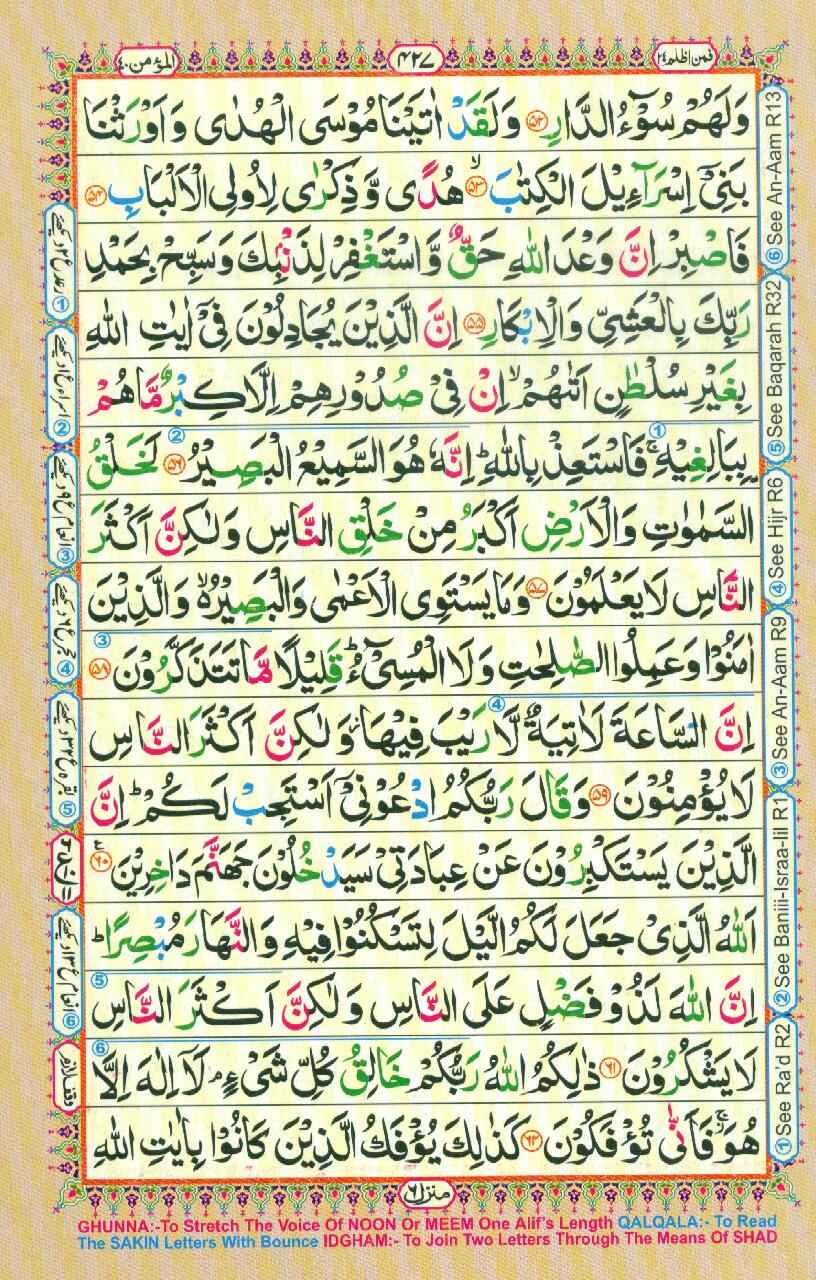 فمن اظلم ۲۴
۴۲۷
المؤمن ۴۰
وَلَهُمْ سُوْٓءُ الدَّارِ ﴿۵۲﴾ وَلَقَدْ اٰتَيْنَا مُوْسَى الْهُدٰى وَاَوْرَثْنَا
بَنِیْۤ اِسْرَآءِيْلَ الْكِتٰبَ ﴿۵۳﴾ۙ هُدًى وَّ ذِكْرٰى لِاُولِى الْاَلْبَابِ ﴿۵۴﴾
فَاصْبِرْ اِنَّ وَعْدَ اللّٰهِ حَقٌّ وَّاسْتَغْفِرْ لِذَنْۢبِكَ وَسَبِّحْ بِحَمْدِ
رَبِّكَ بِالْعَشِیِّ وَالْاِبْكَارِ ﴿۵۵﴾ اِنَّ الَّذِيْنَ يُجَادِلُوْنَ فِیْۤ اٰيٰتِ اللّٰهِ
بِغَيْرِ سُلْطٰنٍ اَتٰىهُمْ ۙ اِنْ فِیْ صُدُوْرِهِمْ اِلَّا كِبْرٌ مَّا هُمْ
بِبَالِغِيْهِ ۚ فَاسْتَعِذْ بِاللّٰهِ ؕ اِنَّهٗ هُوَ السَّمِيْعُ الْبَصِيْرُ ﴿۵۶﴾ لَخَلْقُ
السَّمٰوٰتِ وَالْاَرْضِ اَكْبَرُ مِنْ خَلْقِ النَّاسِ وَلٰكِنَّ اَكْثَرَ
النَّاسِ لَا يَعْلَمُوْنَ ﴿۵۷﴾ وَمَا يَسْتَوِى الْاَعْمٰى وَالْبَصِيْرُ ۙ۬ وَالَّذِيْنَ
اٰمَنُوْا وَعَمِلُوا الصّٰلِحٰتِ وَلَا الْمُسِیْٓءُ ؕ قَلِيْلًا مَّا تَتَذَكَّرُوْنَ ﴿۵۸﴾
اِنَّ السَّاعَةَ لَاٰتِيَةٌ لَّا رَيْبَ فِيْهَا ؗ وَلٰكِنَّ اَكْثَرَ النَّاسِ
لَا يُؤْمِنُوْنَ ﴿۵۹﴾ وَقَالَ رَبُّكُمُ ادْعُوْنِیْۤ اَسْتَجِبْ لَكُمْ ؕ اِنَّ
الَّذِيْنَ يَسْتَكْبِرُوْنَ عَنْ عِبَادَتِیْ سَيَدْخُلُوْنَ جَهَنَّمَ دَاخِرِيْنَ ﴿۶۰﴾
اَللّٰهُ الَّذِیْ جَعَلَ لَكُمُ الَّيْلَ لِتَسْكُنُوْا فِيْهِ وَالنَّهَارَ مُبْصِرًا ؕ
اِنَّ اللّٰهَ لَذُوْ فَضْلٍ عَلَى النَّاسِ وَلٰكِنَّ اَكْثَرَ النَّاسِ
لَا يَشْكُرُوْنَ ﴿۶۱﴾ ذٰلِكُمُ اللّٰهُ رَبُّكُمْ خَالِقُ كُلِّ شَیْءٍ ۘ لَاۤ اِلٰهَ اِلَّا
هُوَ ؗۚ فَاَنّٰى تُؤْفَكُوْنَ ﴿۶۲﴾ كَذٰلِكَ يُؤْفَكُ الَّذِيْنَ كَانُوْا بِاٰيٰتِ اللّٰهِ
منزل ۶
① See Ra'd R2
② See Baniii-Israa-Iil R1
③ See An-Aam R9
④ See Hijr R6
⑤ See Baqarah R32
⑥ See An-Aam R13
① رعد ع ۲ دیکھئے
② اسراء ع ۱ دیکھئے
③ انعام ع ۹ دیکھئے
④ حجر ع ۶ دیکھئے
⑤ بقره ع ۳۲ دیکھئے
⑥ انعام ع ۱۳ دیکھئے
وقف لازم
GHUNNA:-To Stretch The Voice Of NOON Or MEEM One Alif's Length QALQALA:- To Read
The SAKIN Letters With Bounce IDGHAM:- To Join Two Letters Through The Means Of SHAD